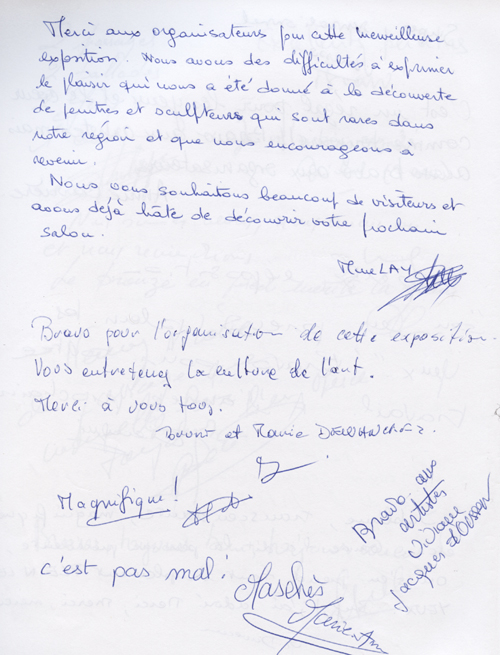 Merci aux organisateurs pour cette merveilleuse
exposition. Nous avons des difficultés à exprimer
le plaisir qui nous a été donné à la découverte
de peintres et sculpteurs qui sont rares dans
notre région et que nous encourageons à
revenir.
Nous vous souhaitons beaucoup de visiteurs et
avons déjà hâte de découvrir votre prochain
salon.
Mme LAY
Bravo pour l'organisation de cette exposition.
Vous entretenez la culture de l'art.
Merci à vous tous.
et Marie
Magnifique!
c'est pas mal.
Bravo aux
artistes
Viviane
Jacques